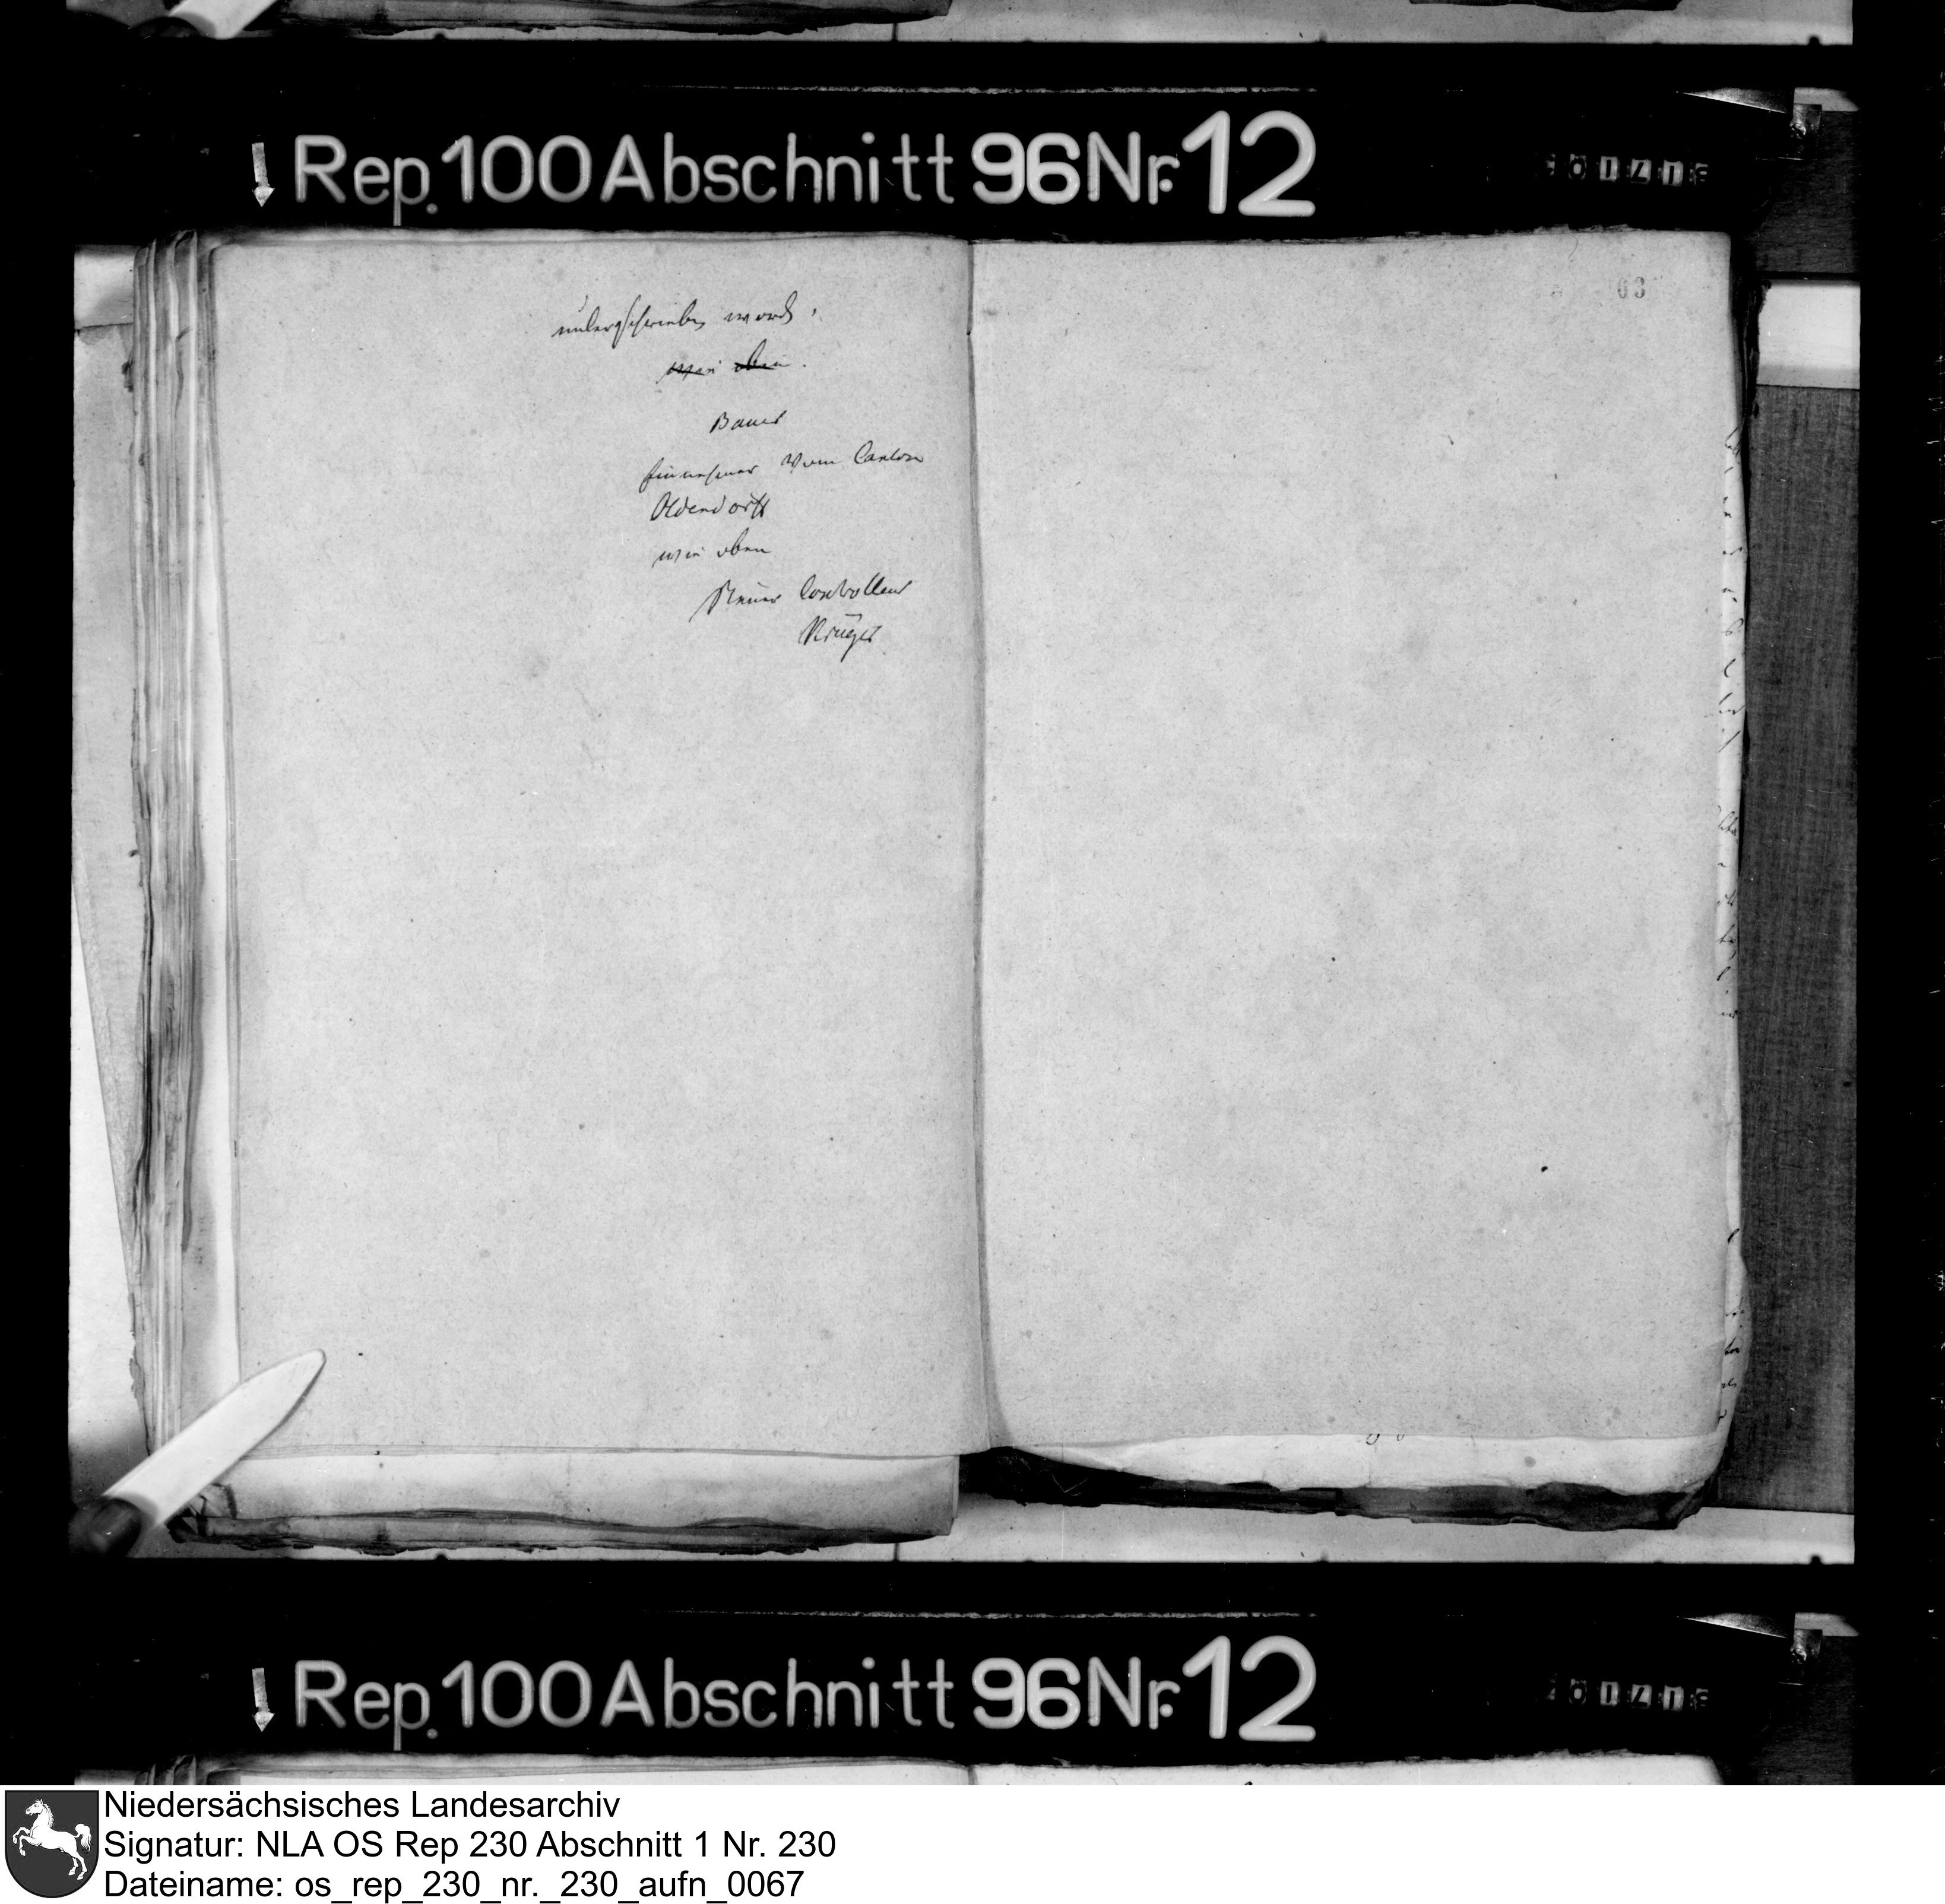 Rep. 100 Abschnitt 96 Nr. 12
unterschrieben worden,
wie oben.
Bauer
Einnehmer vom Canton
Oldendorff
wie oben
Steuer Controlleur
Krüger
63
Rep. 100 Abschnitt 96 Nr. 12
Niedersächsisches Landesarchiv
Signatur: NLA OS Rep 230 Abschnitt 1 Nr. 230
Dateiname: os_rep_230_nr._230_aufn_0067